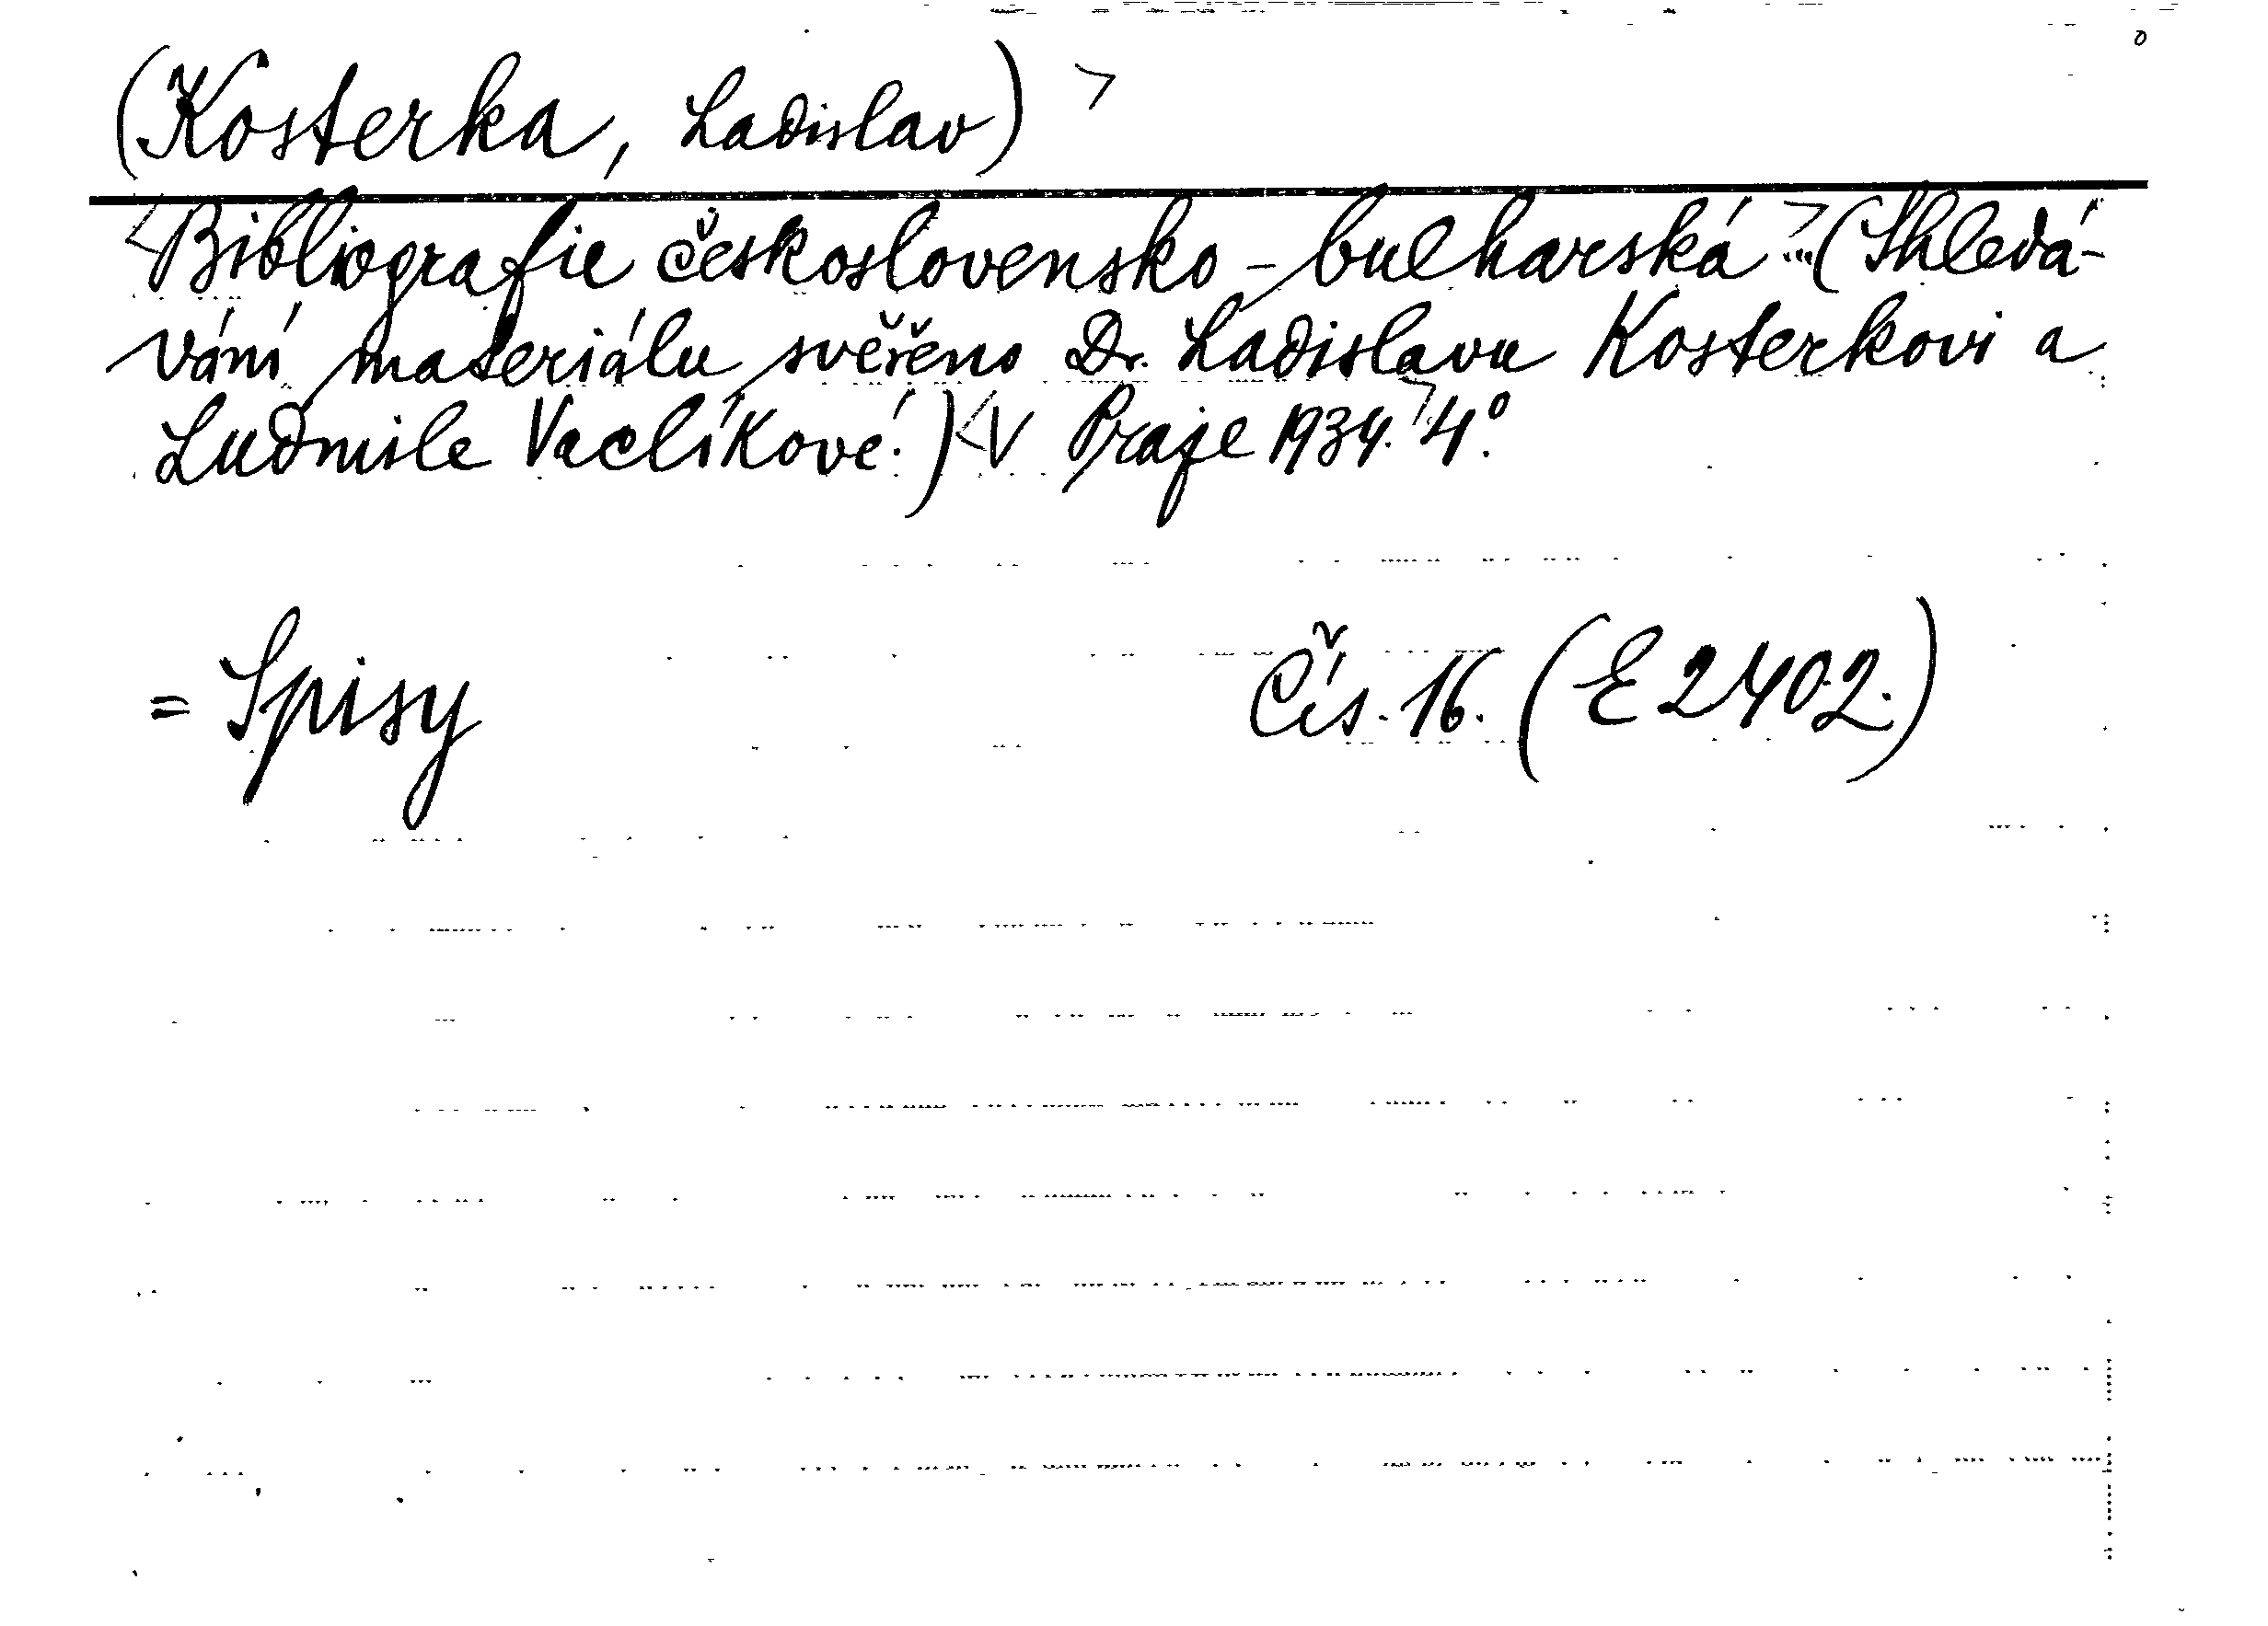 (Kosterka, Ladislav) >
<Bibliografie československo-bulharská> ... (Shledá-
vání materiálu svěřeno Dr. Ladislavu Kosterkovi a
Ludmile Vaclíkové.) <V Praze 1934.> 4°.
= Spisy Čís. 16. (E 2402.)